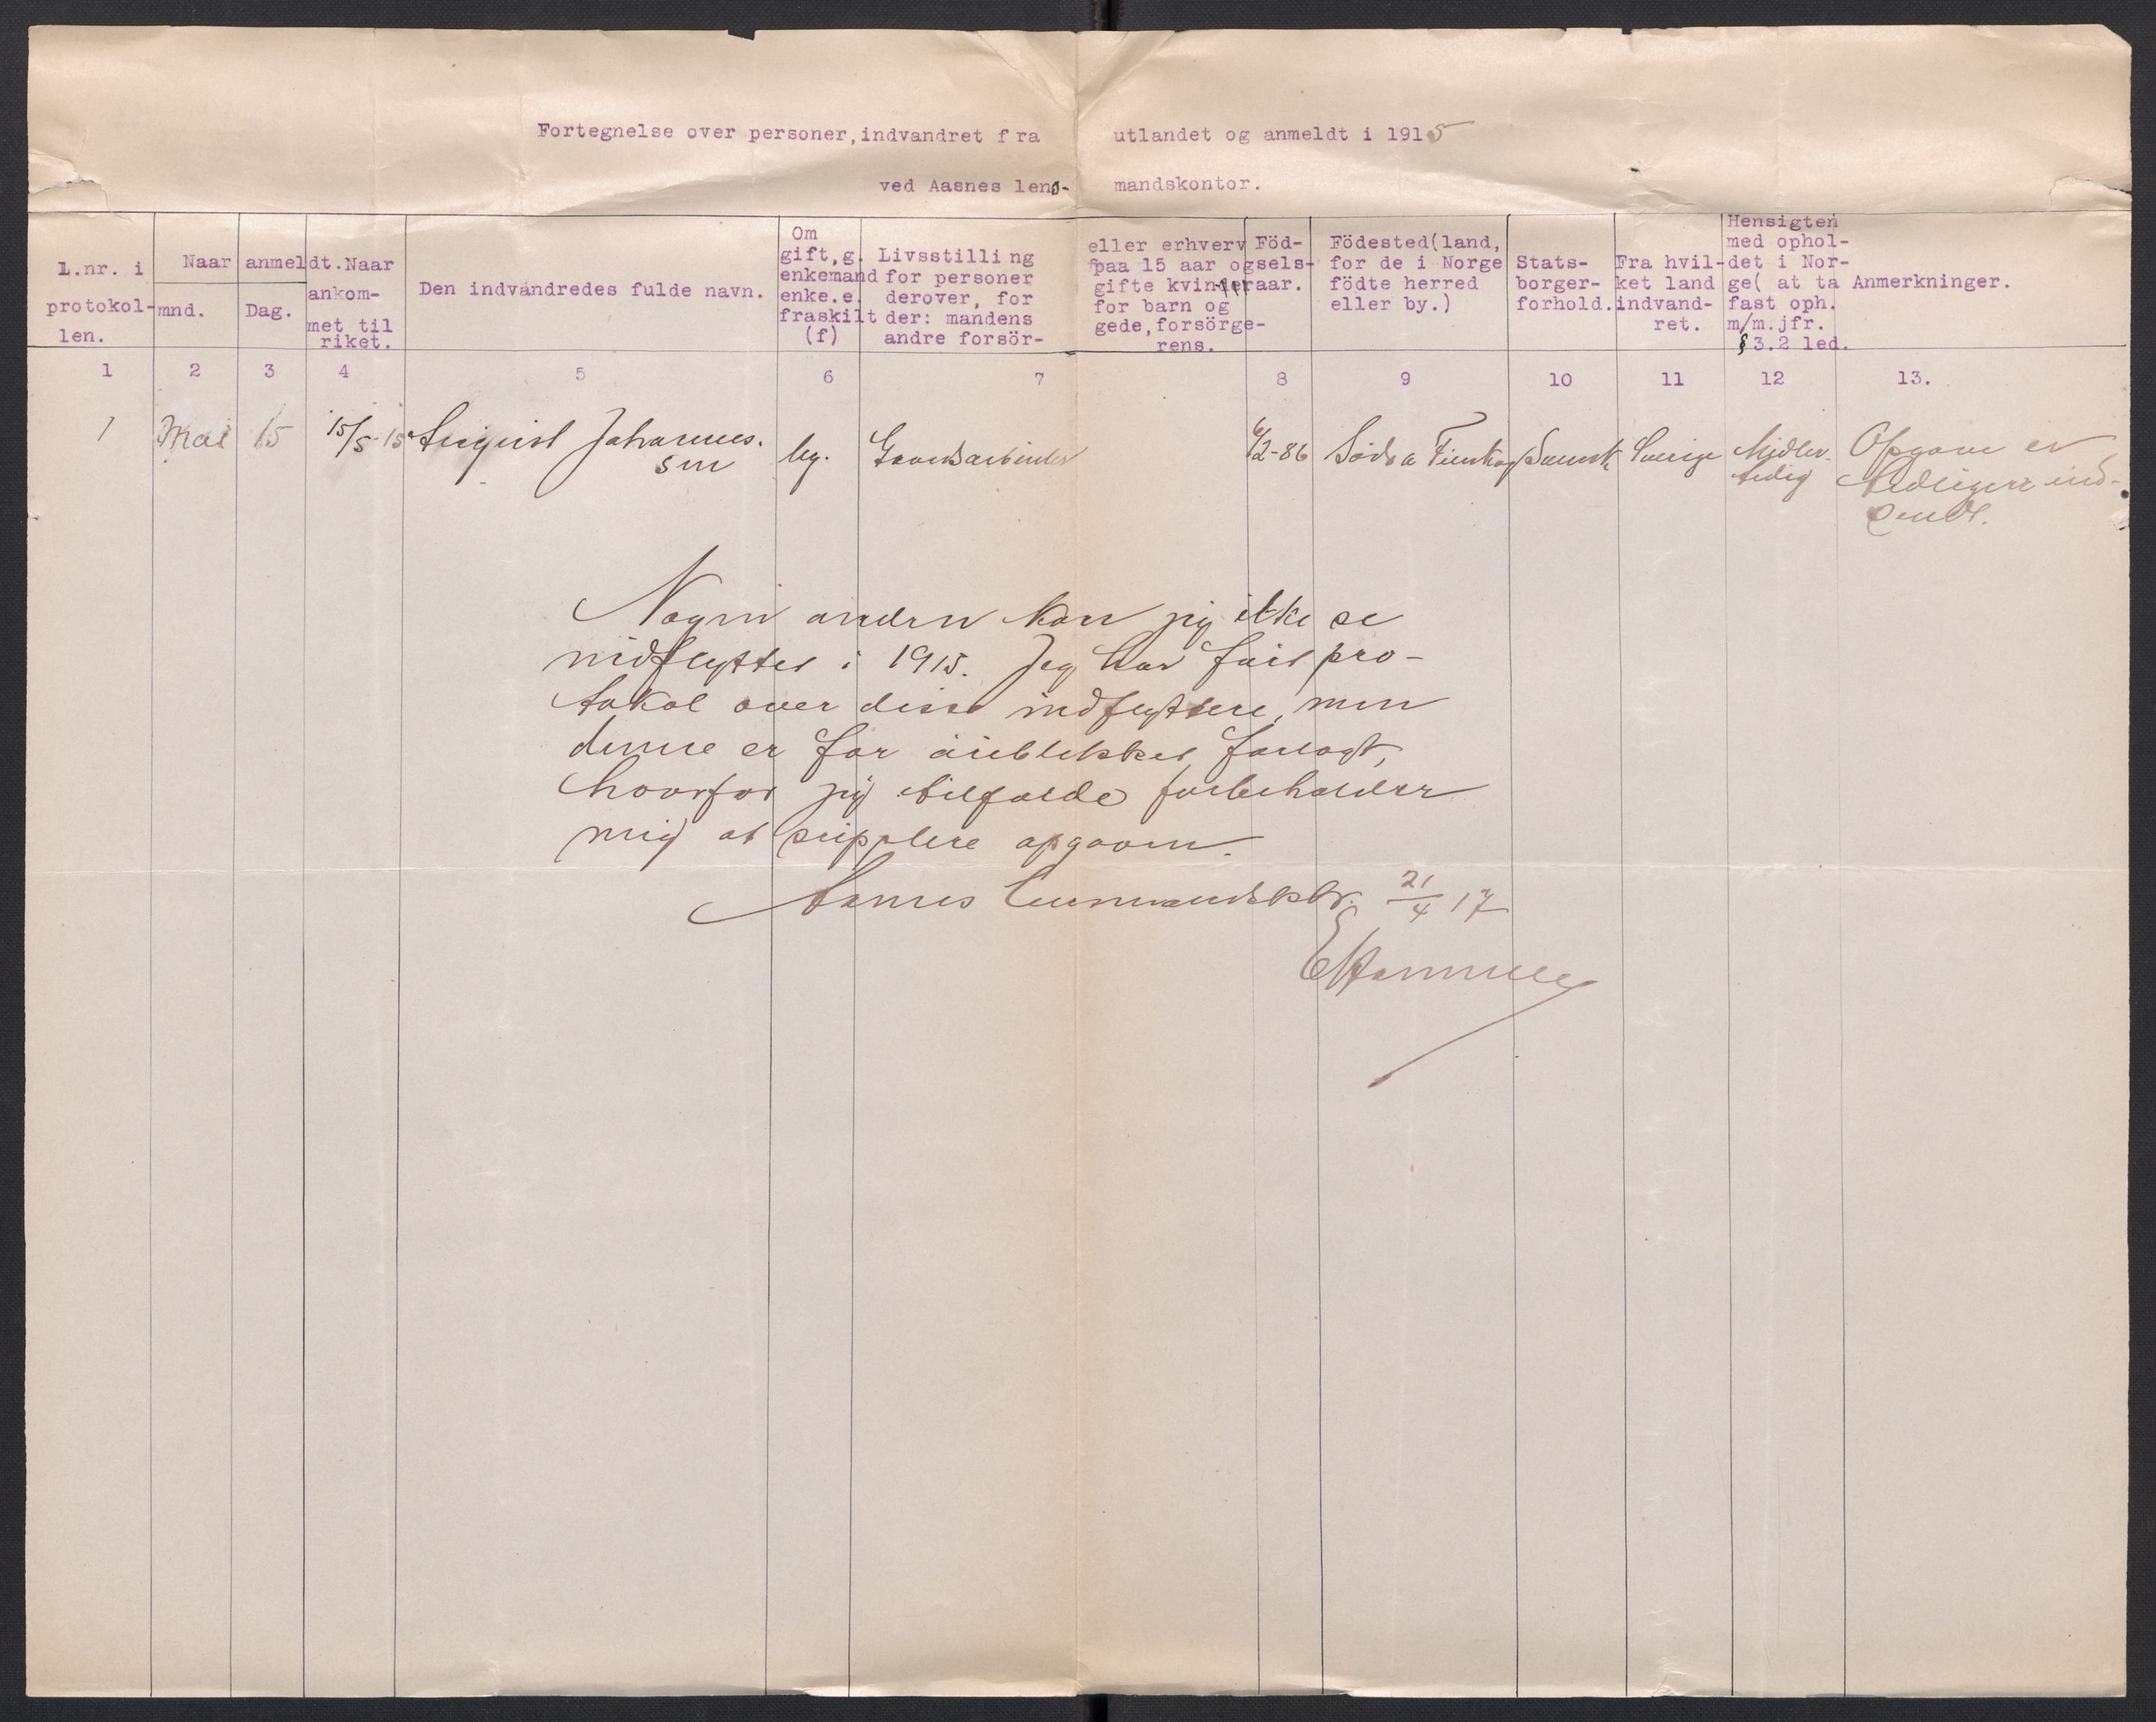 Fortegnelse over personer, indvandret fra utlandet og anmeldt i 1915
ved Aasnes lens- mandskontor.
L.nr. i protokol- len.
Naar anmeldt.
mnd.
Dag.
Naar ankom- met til riket.
Den indvandredes fulde navn.
Om gift,g. enkemand enke.e. fraskilt (f)
Livsstilling eller erhverv
for personer paa 15 aar og
derover, for gifte kvinder
der: mandens for barn og
andre forsör- gede, forsörge-
rens.
Föd- sels- aar.
Födested(land, for de i Norge födte herred eller by.)
Stats- borger- forhold.
Fra hvil- ket land indvand- ret.
Hensigten med ophol- det i Nor- ge( at ta fast oph. m/m.jfr. §3.2 led.
Anmerkninger.
1 2 3 4 5 6 7 8 9 10 11 12 13.
1 Mai 15 15/5-15 August Johannes. sen ug. Gaardsarbeider 6/2-86 Södra Finskog Svensk Sverige Midler- tidig Opgave er tidligere ind- sendt.
Nogen andre kan jeg ikke se
indflyttet i 1915. Jeg har ført pro-
tokol over disse indflyttere, men
denne er for øieblikket forlagt,
hvorfor jeg i tilfælde forbeholder
mig at supplere opgaven.
Aasnes lensmandsktr. 21/4 17